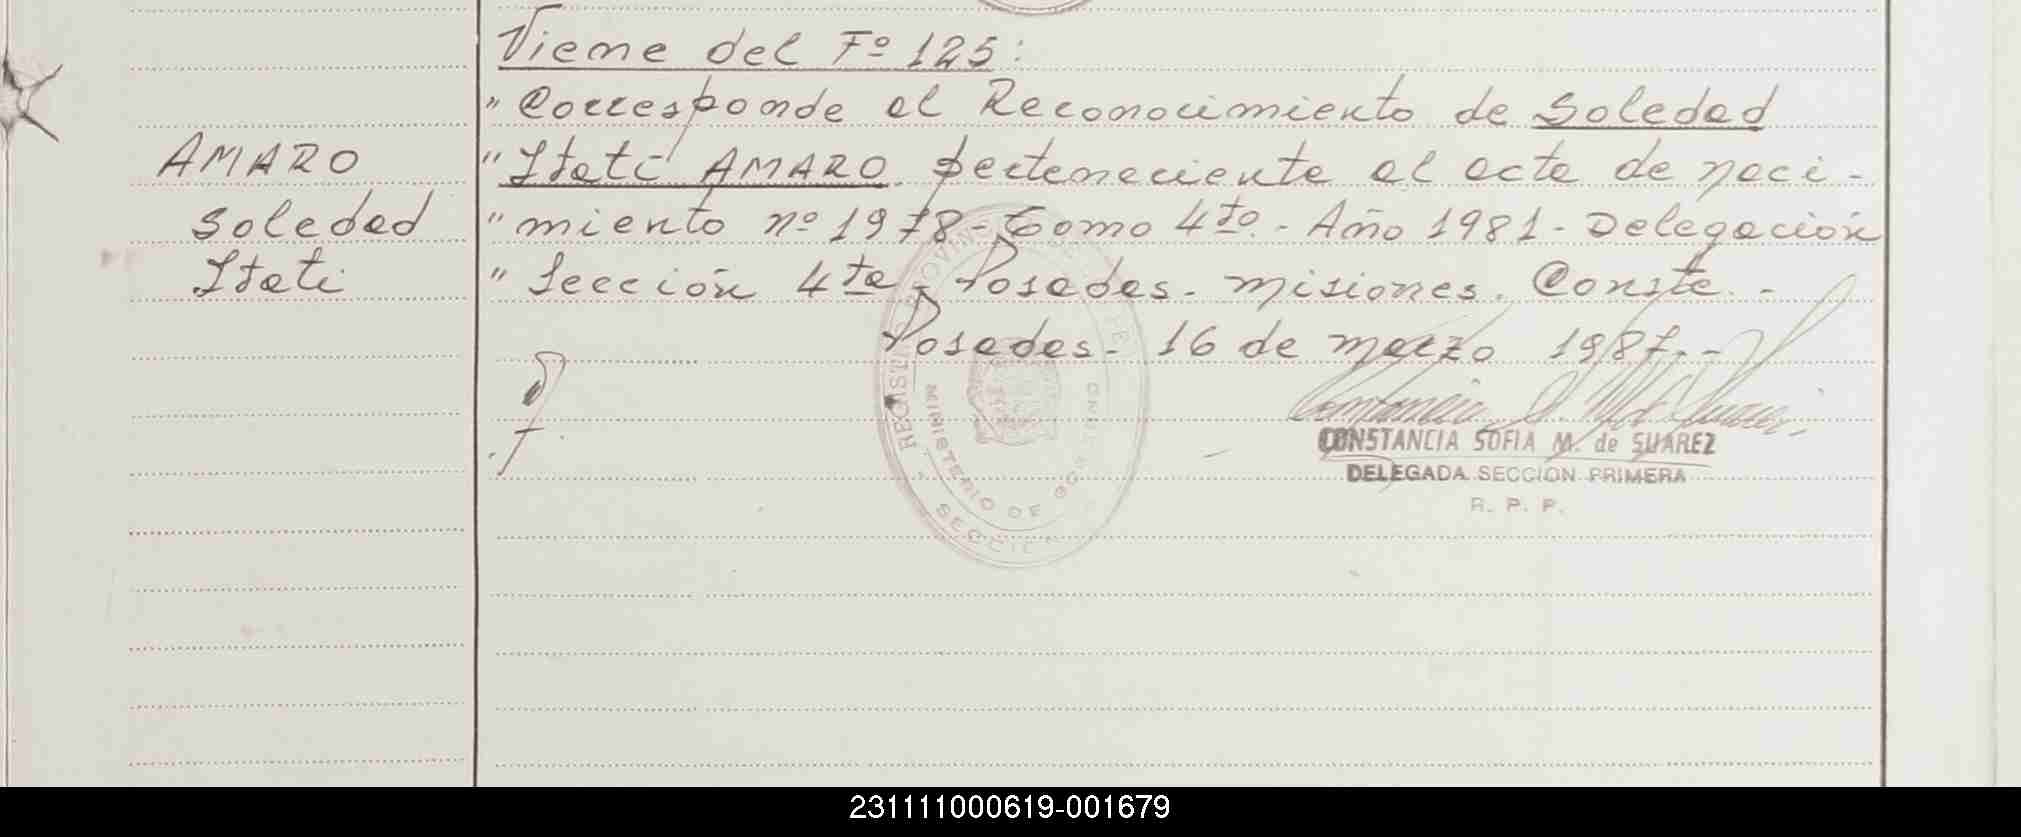 Viene del Fº 125:
" Corresponde al Reconocimiento de Soledad
AMARO
" Itati AMARO. perteneciente al acta de naci-
Soledad
" miento nº 1978 - Tomo 4to. - Año 1981 - Delegación
Itati
" Sección 4ta - Posadas - Misiones. Conste. -
Posadas - 16 de marzo 1987. -
CONSTANCIA SOFIA M. de SUAREZ
DELEGADA SECCION PRIMERA
R. P. P.
REGISTRO PROVINCIAL DE
MINISTERIO DE GOBIERNO
SECCION
231111000619-001679